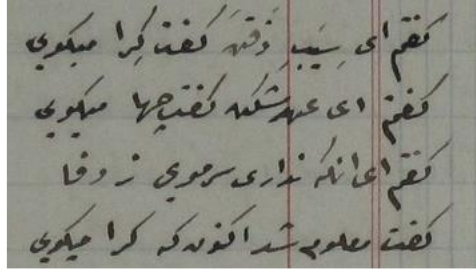 گفتم ای سیبِ ذقن گفت کِرا میگویی
گفتم ای عهدشکن گفت چها میگویی
گفتم ای آنکه نداری سر مویی ز وفا
گفت معلوم شد اکنون که کرا میگویی